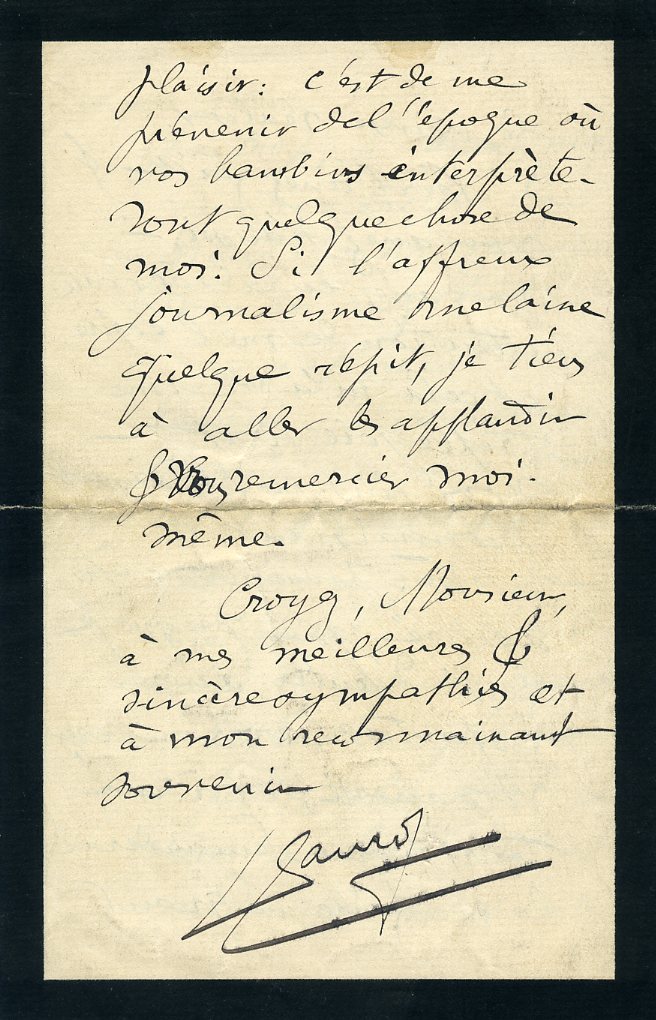 plaisir : c'est de me
prévenir de l'époque où
vos bambins interprète-
ront quelque chose de
moi. Si l'affreux
journalisme me laisse
quelque répit, je tiens
à aller les applaudir
& vous remercier moi-
même.
Croyez, Monsieur,
à mes meilleures &
sincères sympathies et
à mon reconnaissant
souvenir